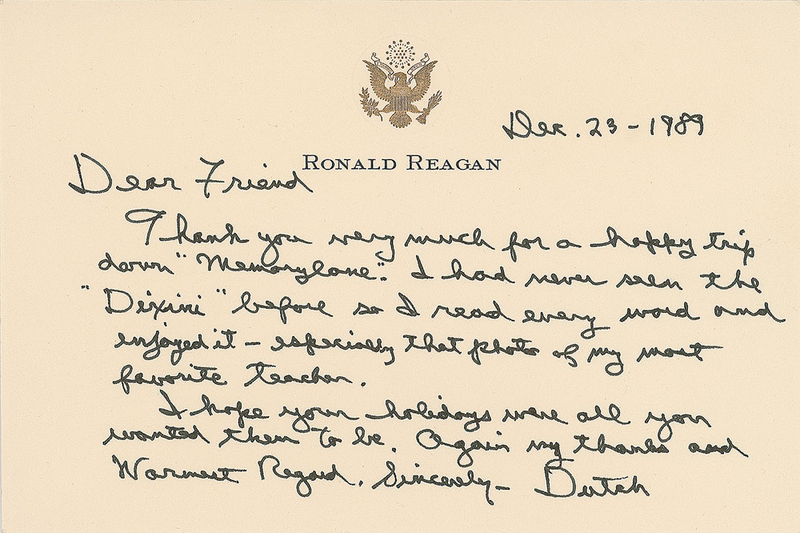 Dec. 23 - 1989
RONALD REAGAN
Dear Friend
Thank you very much for a happy trip
down "Memorylane". I had never seen the
"Dixini" before so I read every word and
enjoyed it - especially that photo of my most
favorite teacher.
I hope your holidays were all you
wanted them to be. Again my thanks and
Warmest Regard. Sincerely - Dutch